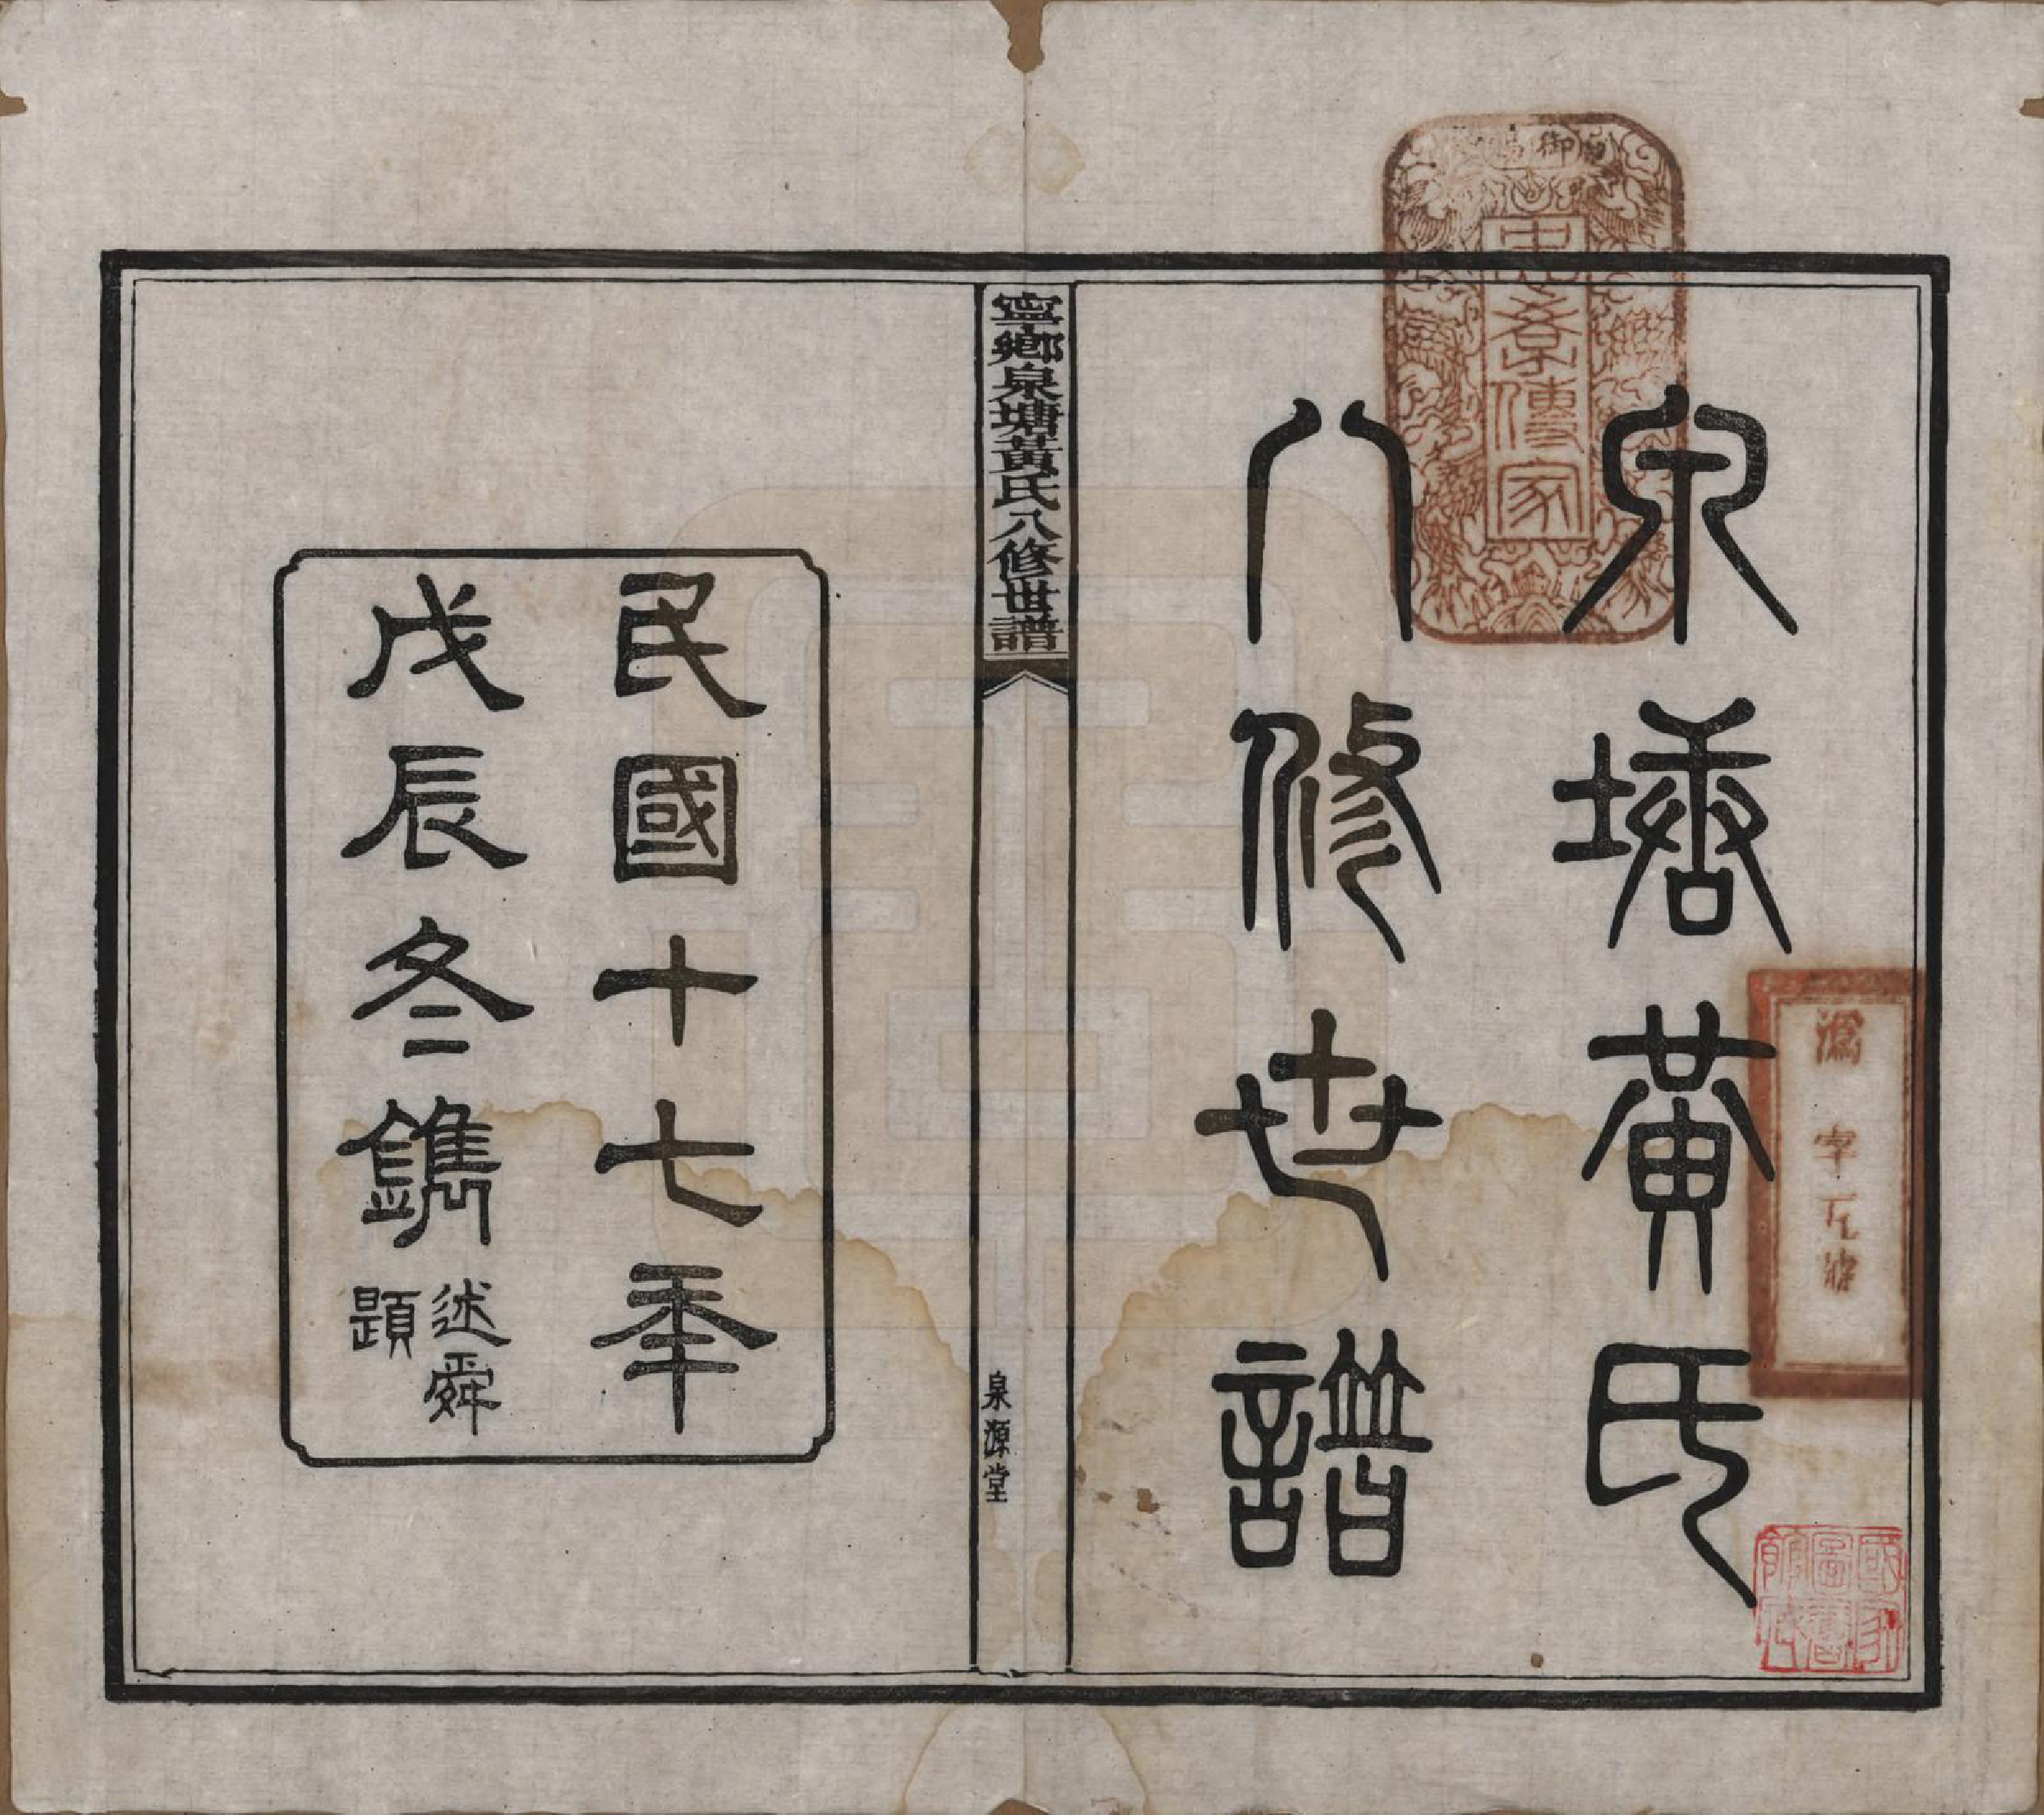 泉塘黄氏
八修世譜
御賜
忠孝傳家
溈字左號
國家
圖書
館藏
寧鄉泉塘黃氏八修世譜
泉源堂
民國十七年
戊辰冬鐫
述舜
題